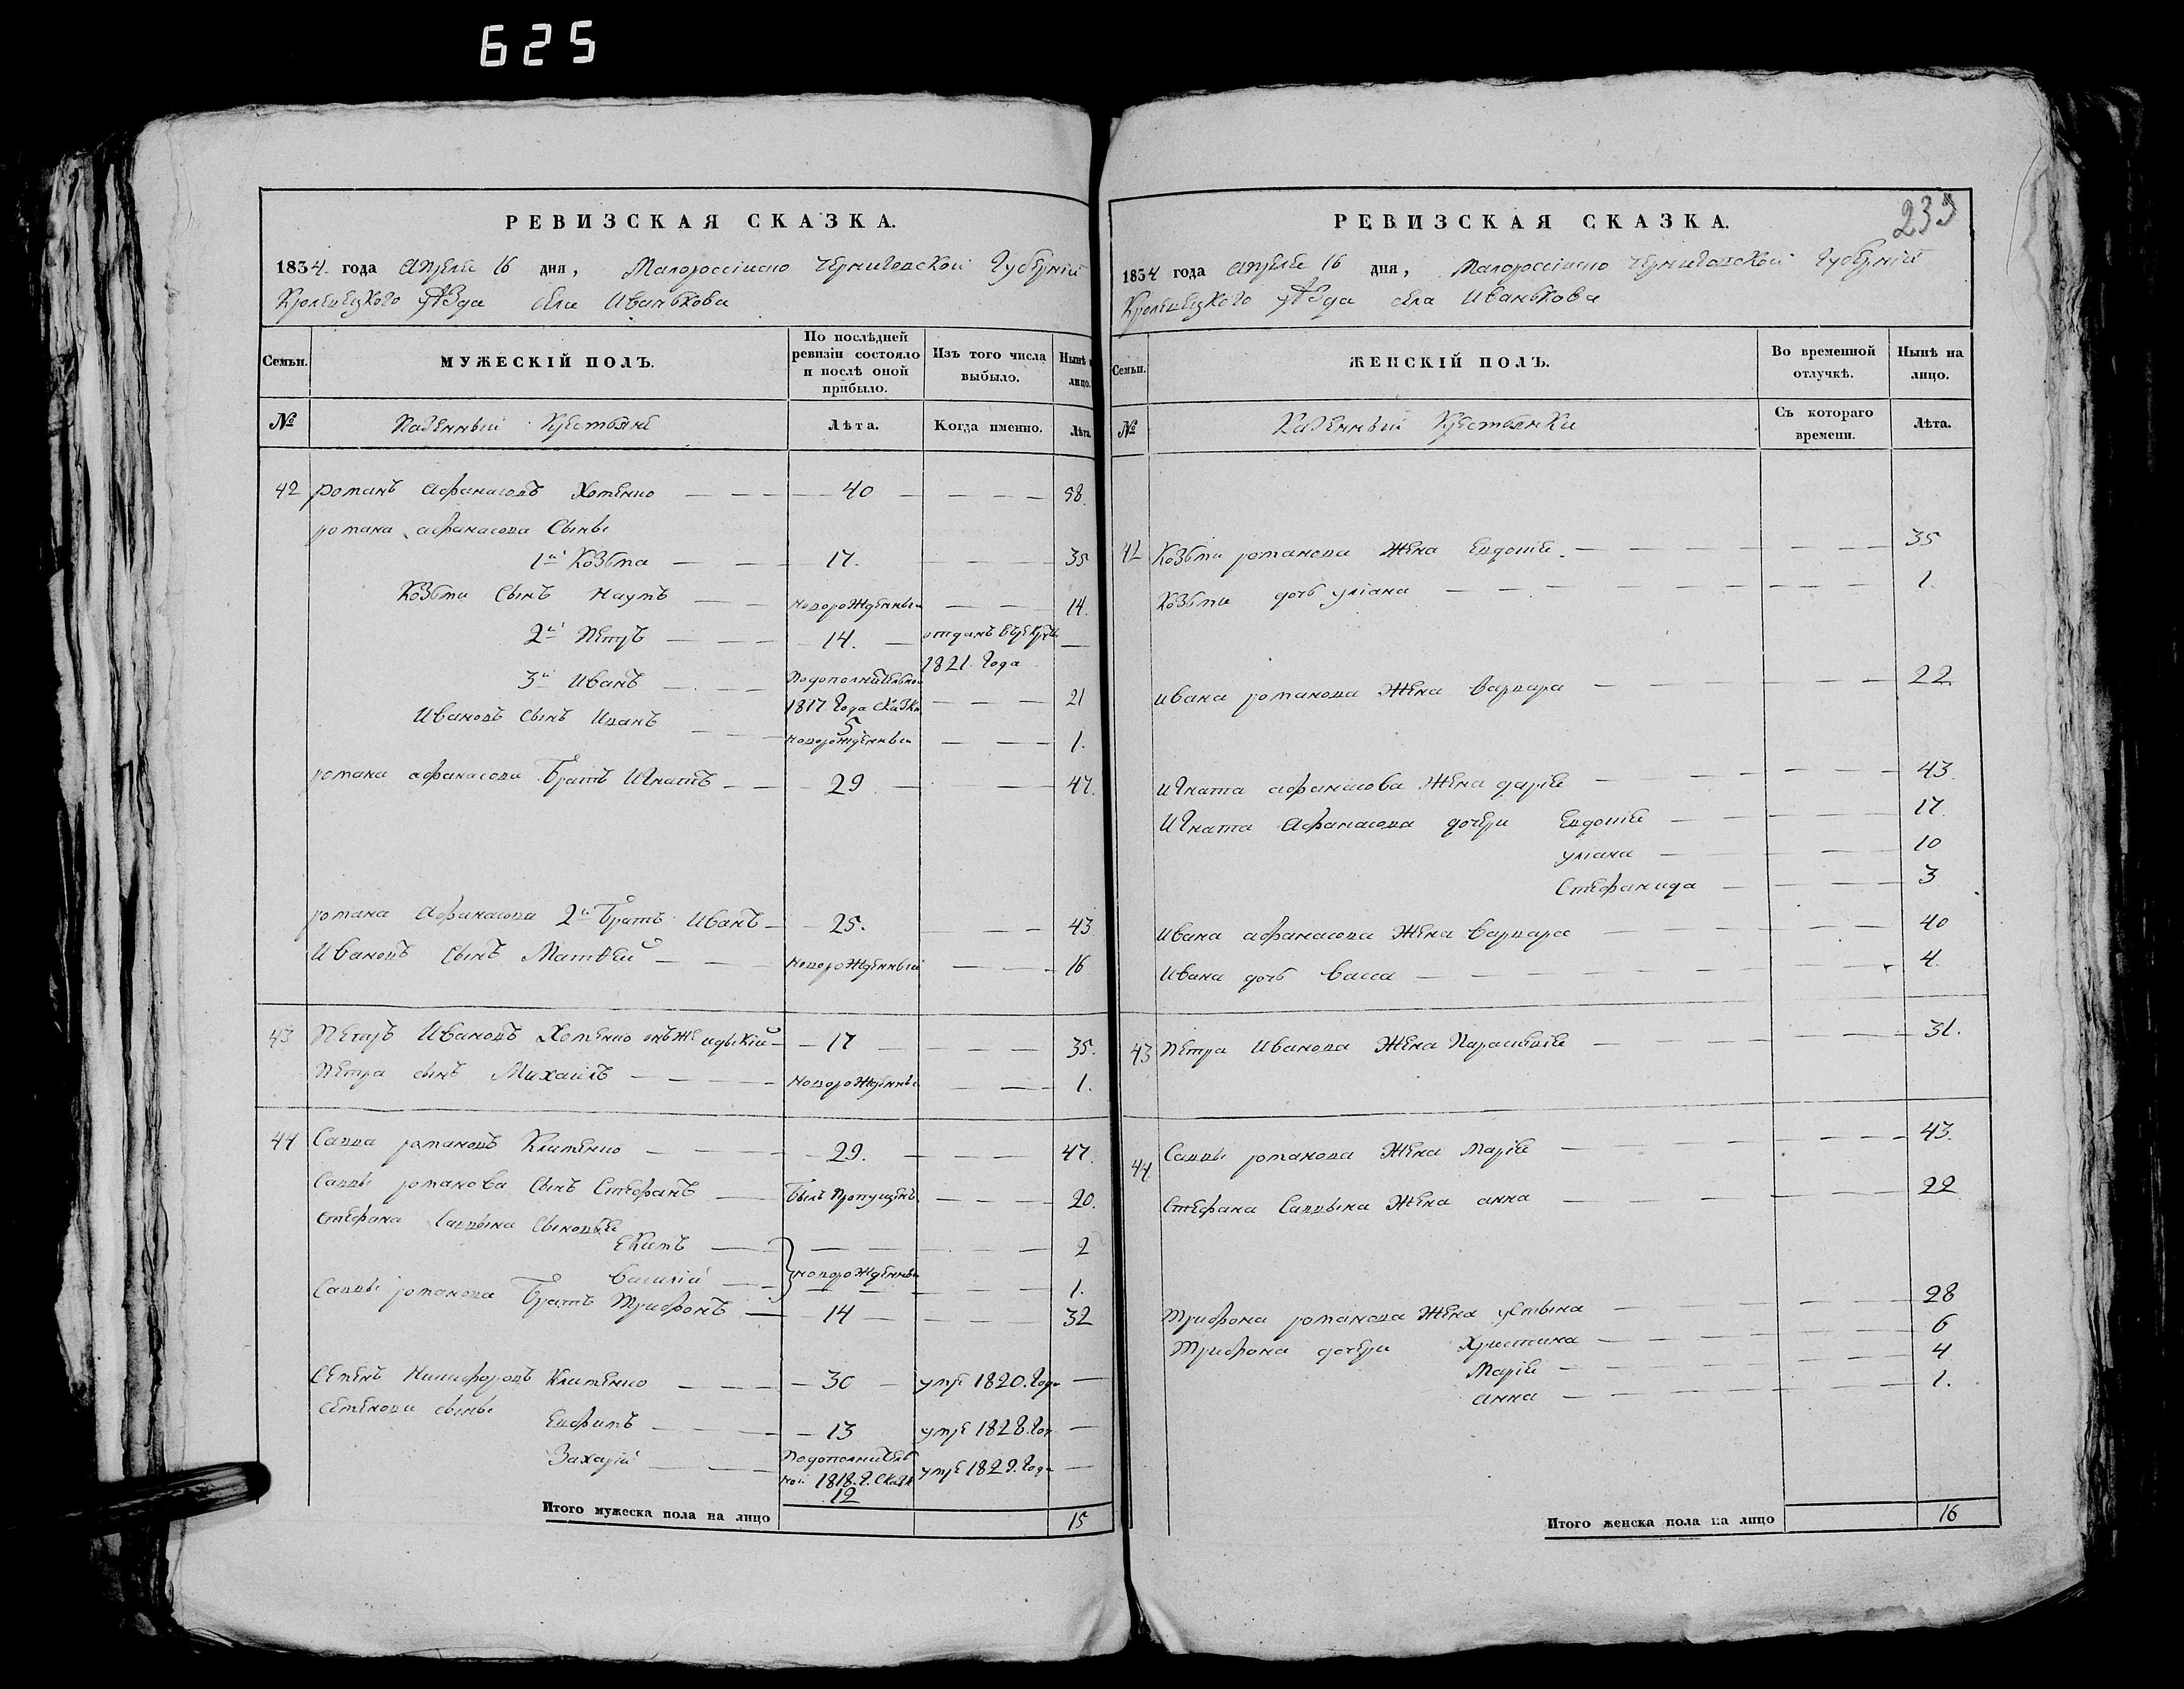 625
РЕВИЗСКАЯ СКАЗКА.
1834 года апреля 16 дня, Малороссийско Черниговской Губернии
Кролевецкого уѣзда села Иванькова
Семьи. МУЖЕСКІЙ ПОЛЪ. По послѣдней ревизіи состояло и послѣ оной прибыло. Изъ того числа выбыло. Нынѣ лицо.
№ Казенныи Крестьяне Лѣта. Когда именно. Лѣта.
42 романъ афанасовъ Хоменко — 40 — 58
романа афанасова Сыны
1й Козьма — 17. — 35
Козьми Сынъ Наумъ — новорожденный — 14.
2й Петръ — 14. — отданъ 1821 Года —
3й Иванъ — По дополнительной 1817 Года сказки 5 — 21
Ивановъ Сынъ Иванъ — новорожденный — 1.
романа афанасова Братъ Игнатъ — 29 — 47.
романа афанасова 2й Братъ Иванъ — 25. — 43
Ивановъ Сынъ Матвей — новорожденный — 16
43 Петръ Ивановъ Хоменко онъже — 17 — 35.
Петра сынъ Михаилъ — новорожденный — 1.
44 Савва романовъ Клименко — 29. — 47.
Саввы романова Сынъ Стефанъ — Былъ пропущенъ — 20.
Стефана Саввина Сыновья
— 2
Василій — новорожденныи — 1.
Саввы романова Братъ Трифонъ — 14 — 32
Семенъ Никифоровъ Клименко — 30 — умре 1820. Года —
Семенови сыны
Евфимъ — 13 умре 1828. Год —
Захарій — По дополнительной 1818. г. Сказки 12 умре 1829. Года —
Итого мужеска пола на лицо 15
239
РЕВИЗСКАЯ СКАЗКА.
1834 года апреля 16 дня, Малороссийско Черниговской Губернии
Кролевецкого уѣзда села Иванькова
Семьи. ЖЕНСКІЙ ПОЛЪ. Во временной отлучкѣ. Нынѣ на лицо.
№ Казенныи Крестьянки Съ котораго времени. Лѣта.
42 Козьми романова Жена Евдокия — 35
Козьми дочь уліана — 1.
ивана романова Жена Варвара — 22
игната афанасова Жена дарія — 43.
игната Афанасова дочери Евдокия — 17.
уліана — 10
Стефанида — 3
ивана афанасова Жена Варвара — 40
ивана дочь Васса — 4.
43 Петра Иванова Жена Параскевія — 31.
44 Саввы романова Жена Марія — 43.
Стефана Саввина Жена анна — 22
Трифона романова Жена устина — 28
Трифона дочери Христина — 6
Марія — 4
анна — 1.
Итого женска пола на лицо 16